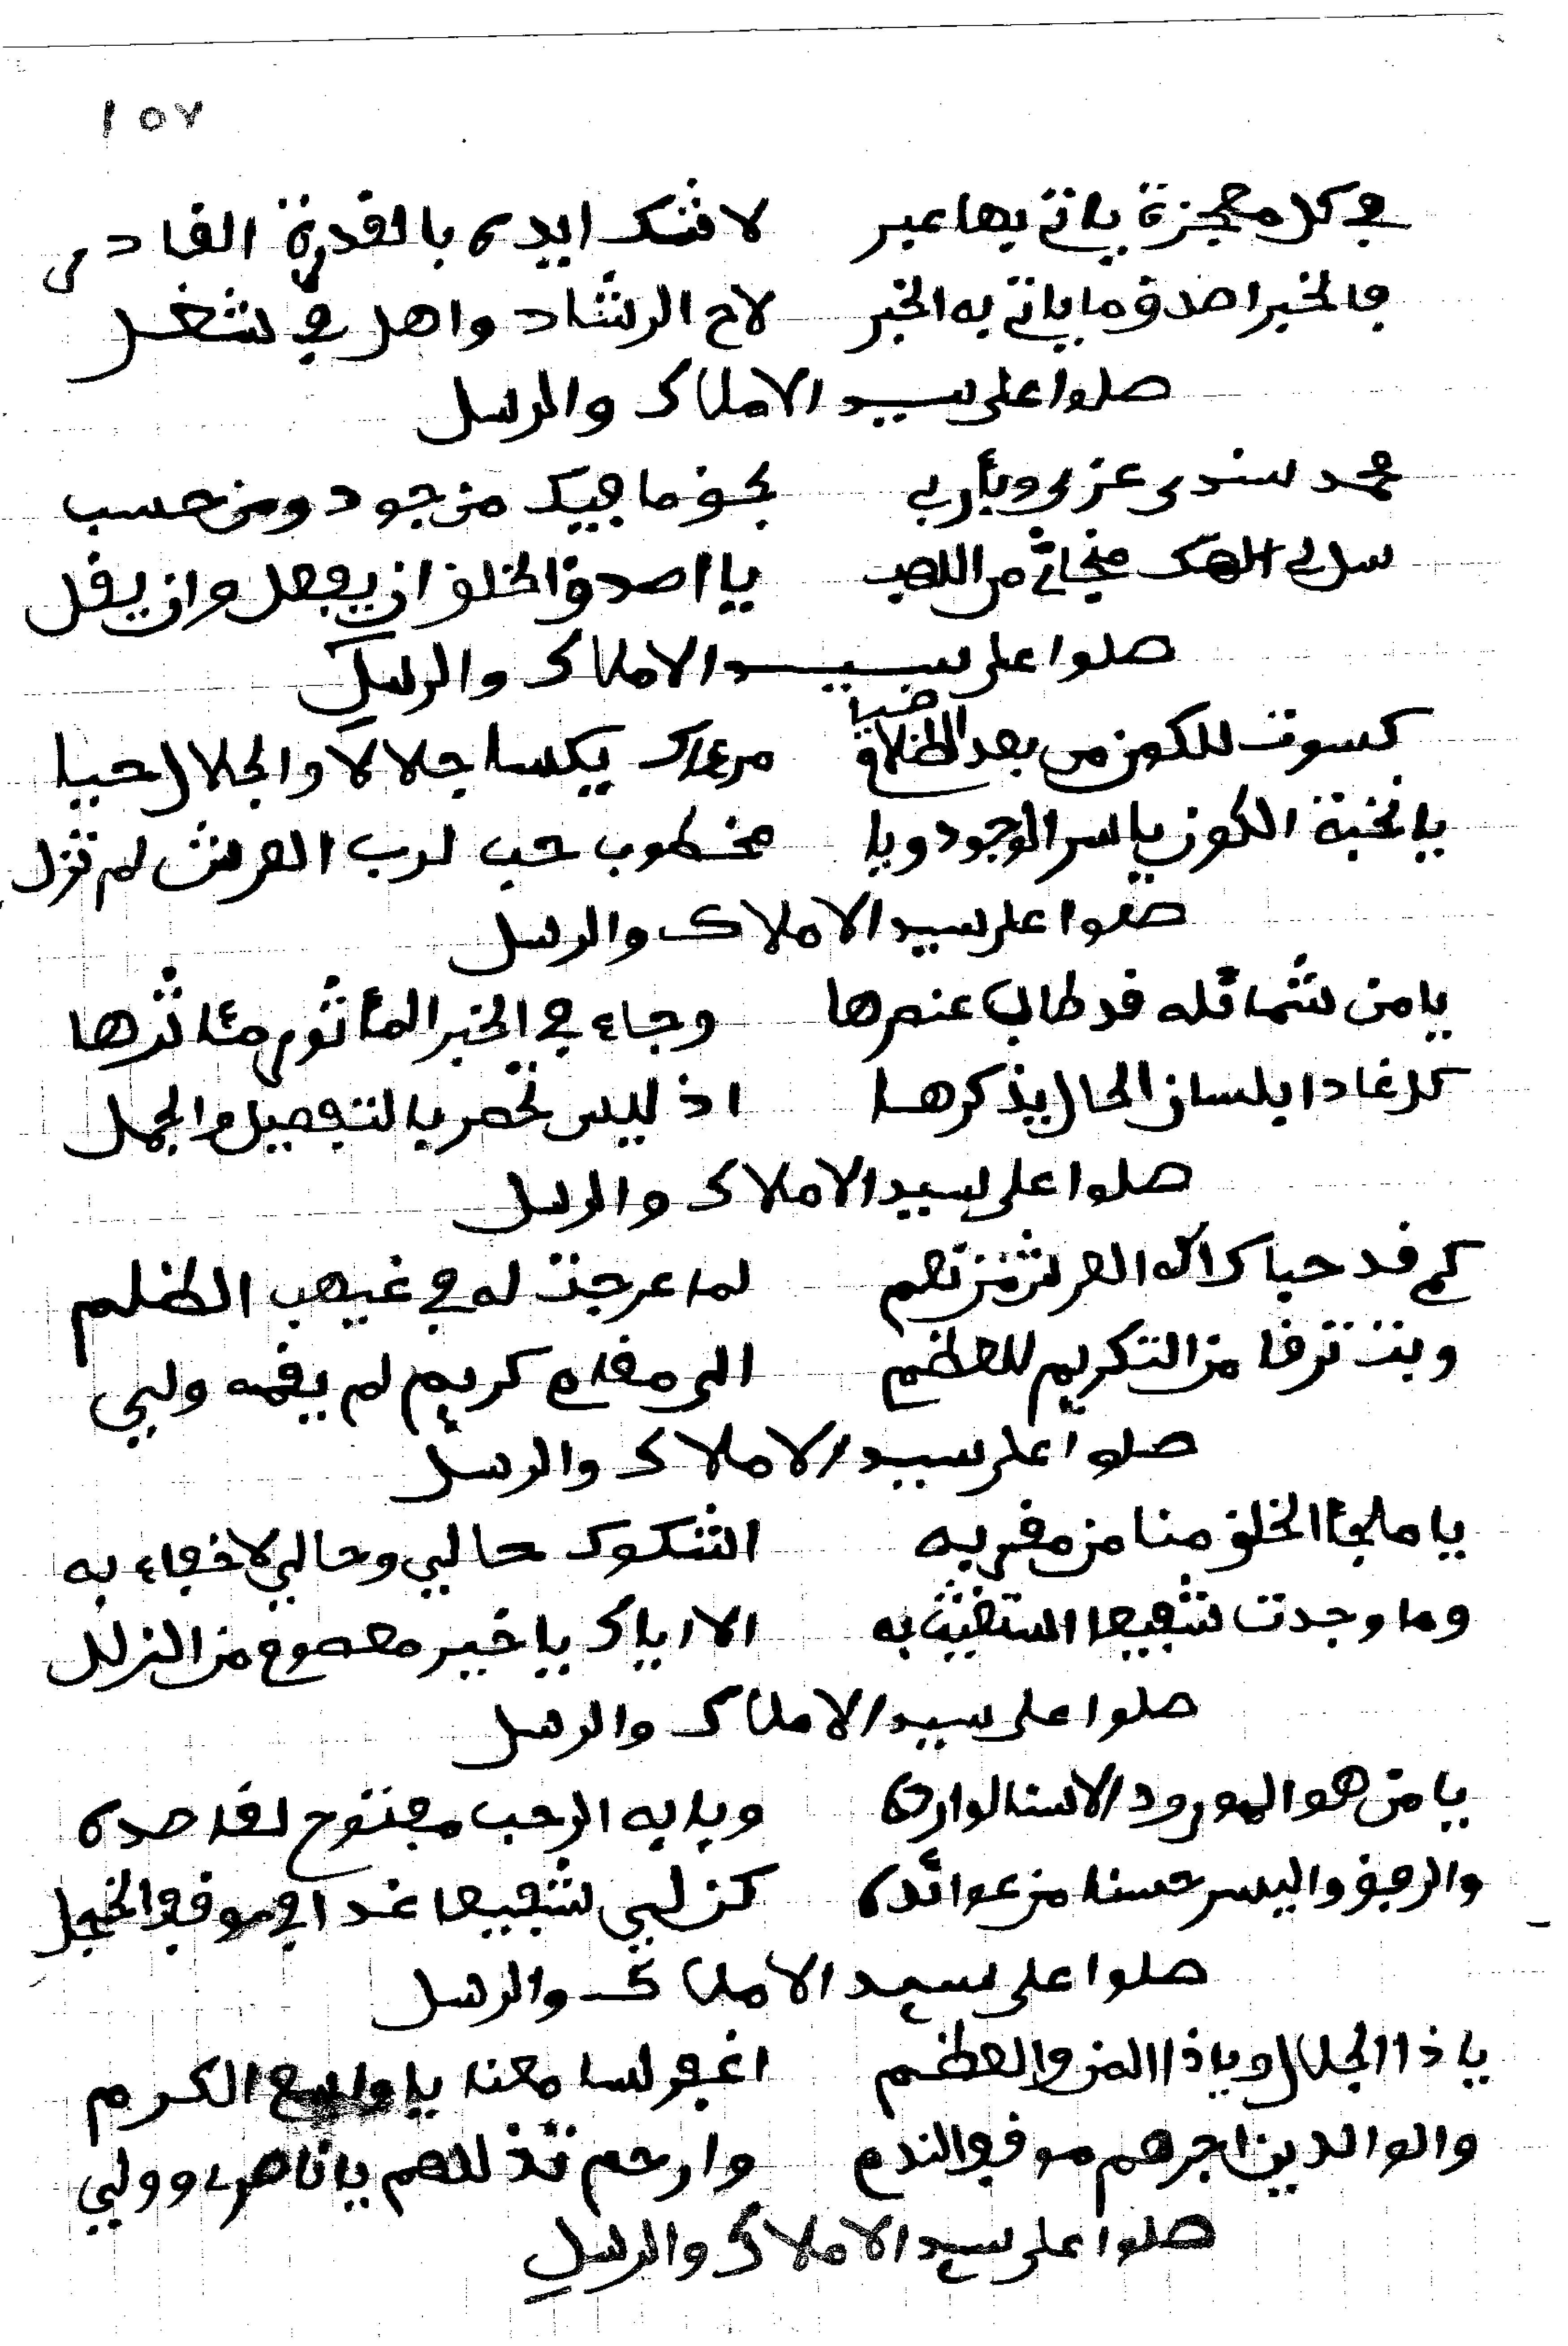 ١٥٧
في كل معجزة ياتي بها عبر لا شك ايدى بالقدرة القادر
فالخبر اصدق ما ياتي به الخبر لاح الرشاد واهل في شغل
صلوا على سيد الاملاك والرسل
محمد سندى عزى ويأربي بحق ما فيك من جود ومن حسب
سل لي الهك منجاتي من اللهب يا اصدق الخلق ان يفعل وان يقل
صلوا على سيد الاملاك والرسل
كسوت للكون من بعد الظلام ضيا مرءاك يكسا جلالا والجلال حيا
يا نخبة الكون يا سر الوجود ويا مخطوب حب لرب العرش لم تزل
صلوا على سيد الاملاك والرسل
يا من شمائله قد طاب عنصرها وجاء في الخبر المأثور مئاثرها
كل غادا بلسان الحال يذكرها اذ ليس تحصر بالتفصيل والجمل
صلوا على سيد الاملاك والرسل
كم قد حباك اله العرش من نعم لما عرجت له في غيهب الظلم
وبت ترقا من التكريم للعظم الى مقام كريم لم يقمه ولي
صلوا على سيد الاملاك والرسل
يا ملجأ الخلق منا من مغربه اشكوك حالي وحالي لا خفاء به
وما وجدت شفيعا استغيث به الا اياك يا خير معصوم من الزلل
صلوا على سيد الاملاك والرسل
يا من هو المورود الاسنا لوارده وبابه الرحب مفتوح لقاصده
والرفق واليسر حسنا من عوائده كن لي شفيعا غدا في موقف الخجل
صلوا على سيد الاملاك والرسل
يا ذا الجلال ويا ذا المن والعظم اغفر لسامعنا يا واسع الكرم
والوالدين اجرهم موقف الندم وارحم تذللهم يا ناصرى وولي
صلوا على سيد الاملاك والرسل